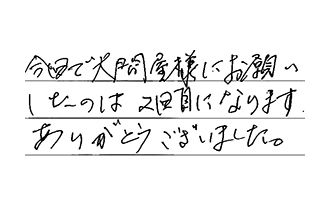 今回で大問屋様にお願い
したのは2回目になります.
ありがとうございました。